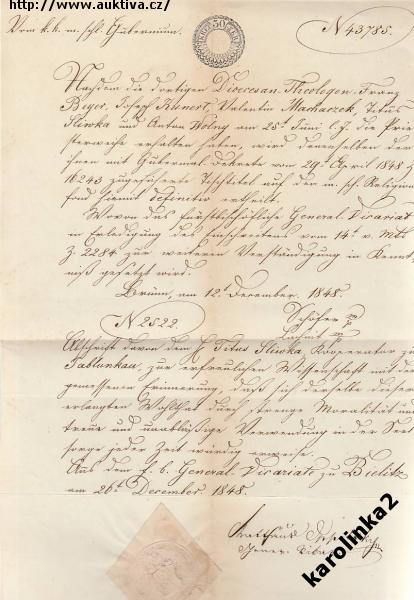 http://www.auktiva.cz/
Vom k. k. m. schl. Gubernium.
N 43785.
50
Nachdem die dortigen Dioecesan Theologen Franz
Beyer, Joseph Kunert, Valentin Macharzek, Titus
Sliwka und Anton Wolny am 25t Juni l. J. die Prie
sterweihe erhalten haben, wird denenselben der
ihnen mit Gubernial Dekrete vom 29t April 1848 Z
16243 zugesicherte Tischtitel auf den m. sch. Religions
fond hiemit definitiv ertheilt.
Wovon das fürstbischöfliche General Vicariat
in Erledigung des Einschreitens vom 14t v. Mts
Z 2284 zur weiteren Verständigung in Kennt,
niß gesetzt wird.
Brünn, am 12t December 1848.
N 2522
Abschrift davon dem H Titus Sliwka Kooperator zu
Jablunkau, zur erfreulichen Wissenschaft mit der
gemessenen Erinnerung, daß sich derselbe dieser
erlangten Wohlthat durch strenge Moralität und
treue und unablässige Verwendung in der Seel
sorge jeder Zeit würdig erweise.
Aus dem f. b. General Vicariate zu Bielitz
am 26t December 1848.
karolinka2